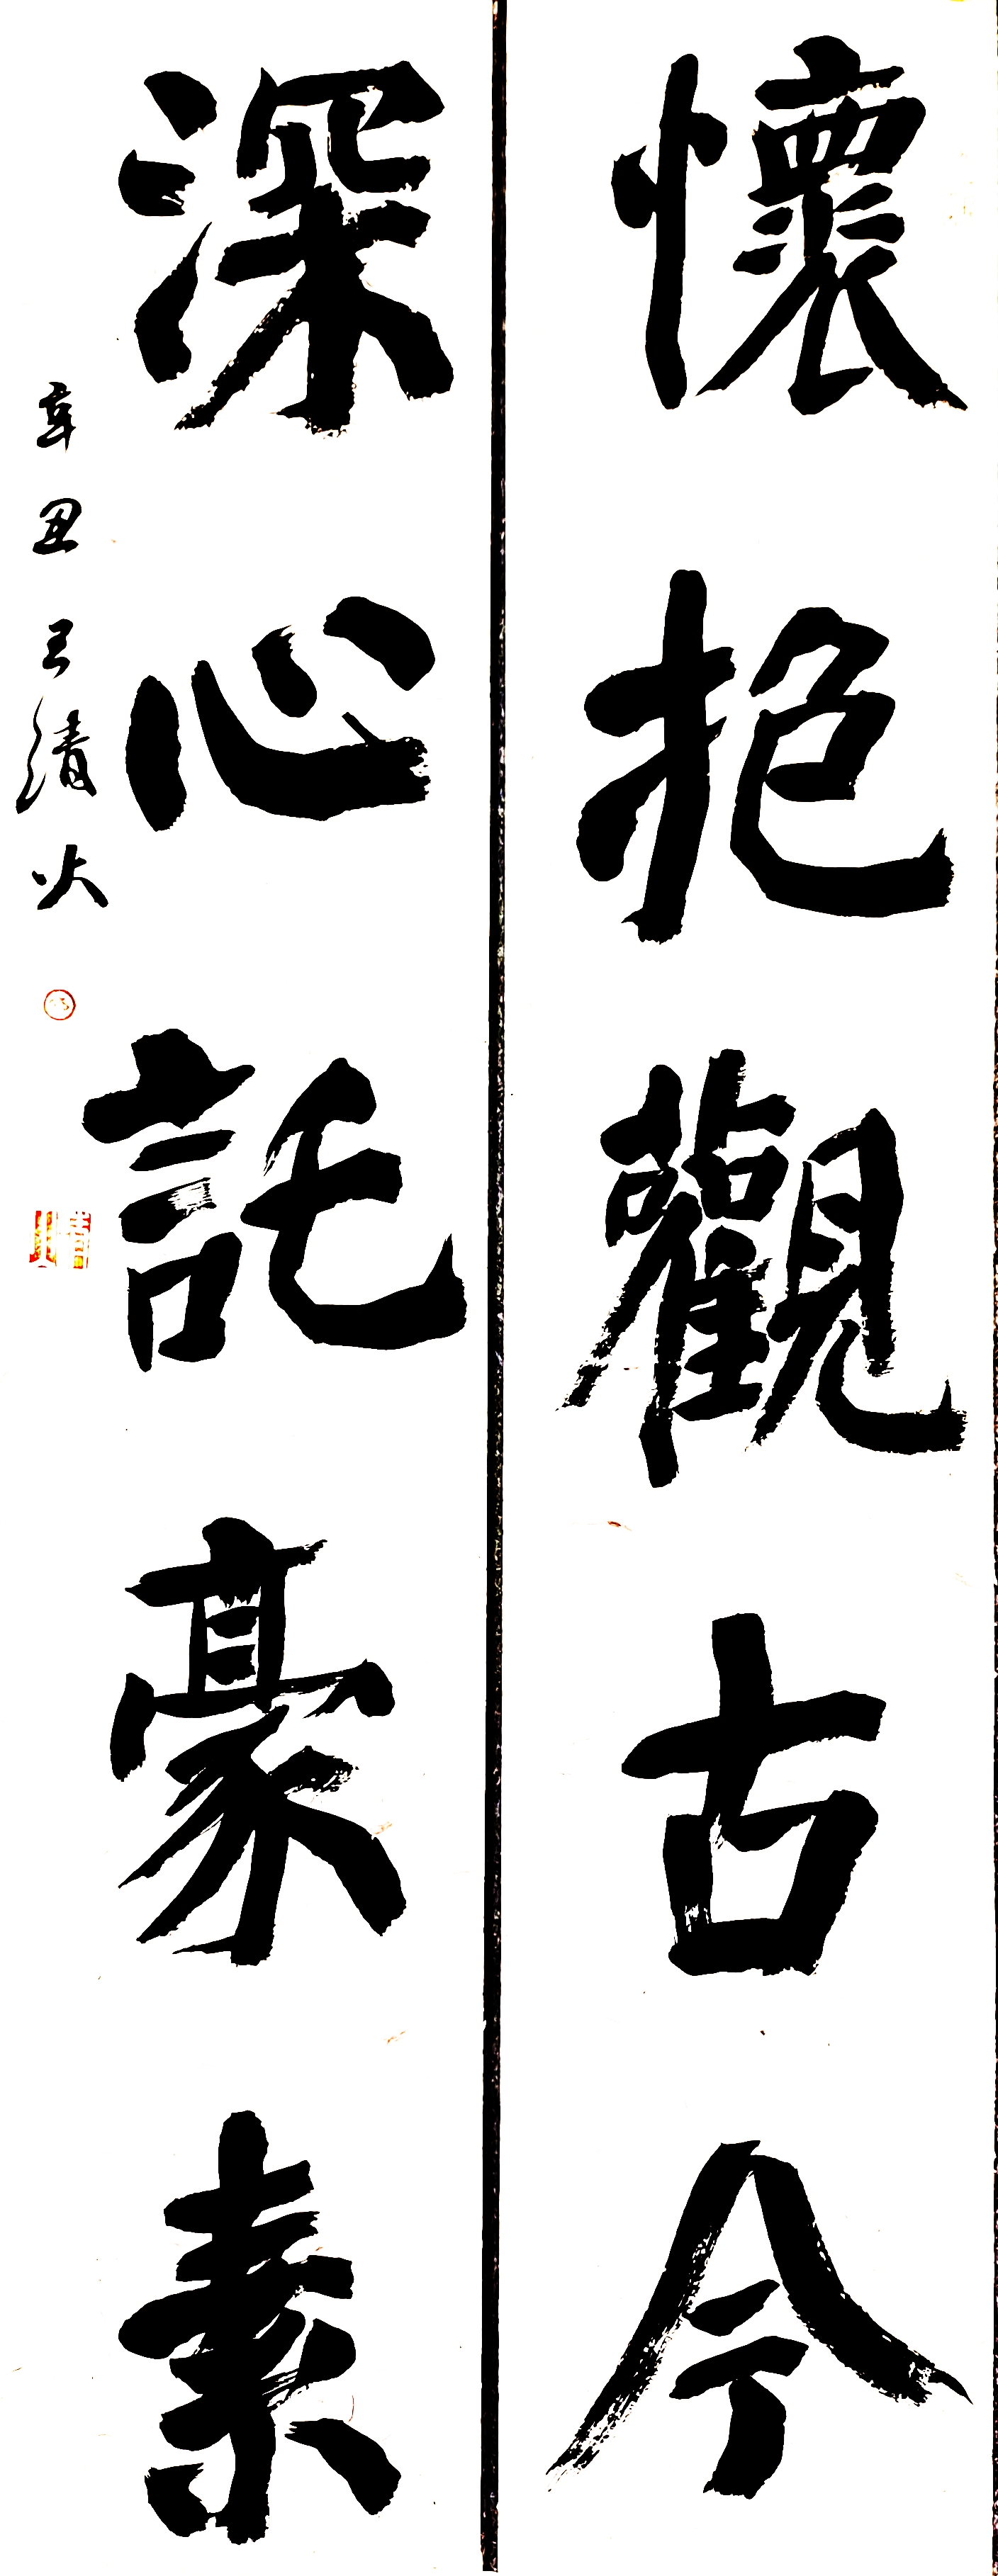 懷抱觀古今
深心託豪素
辛丑